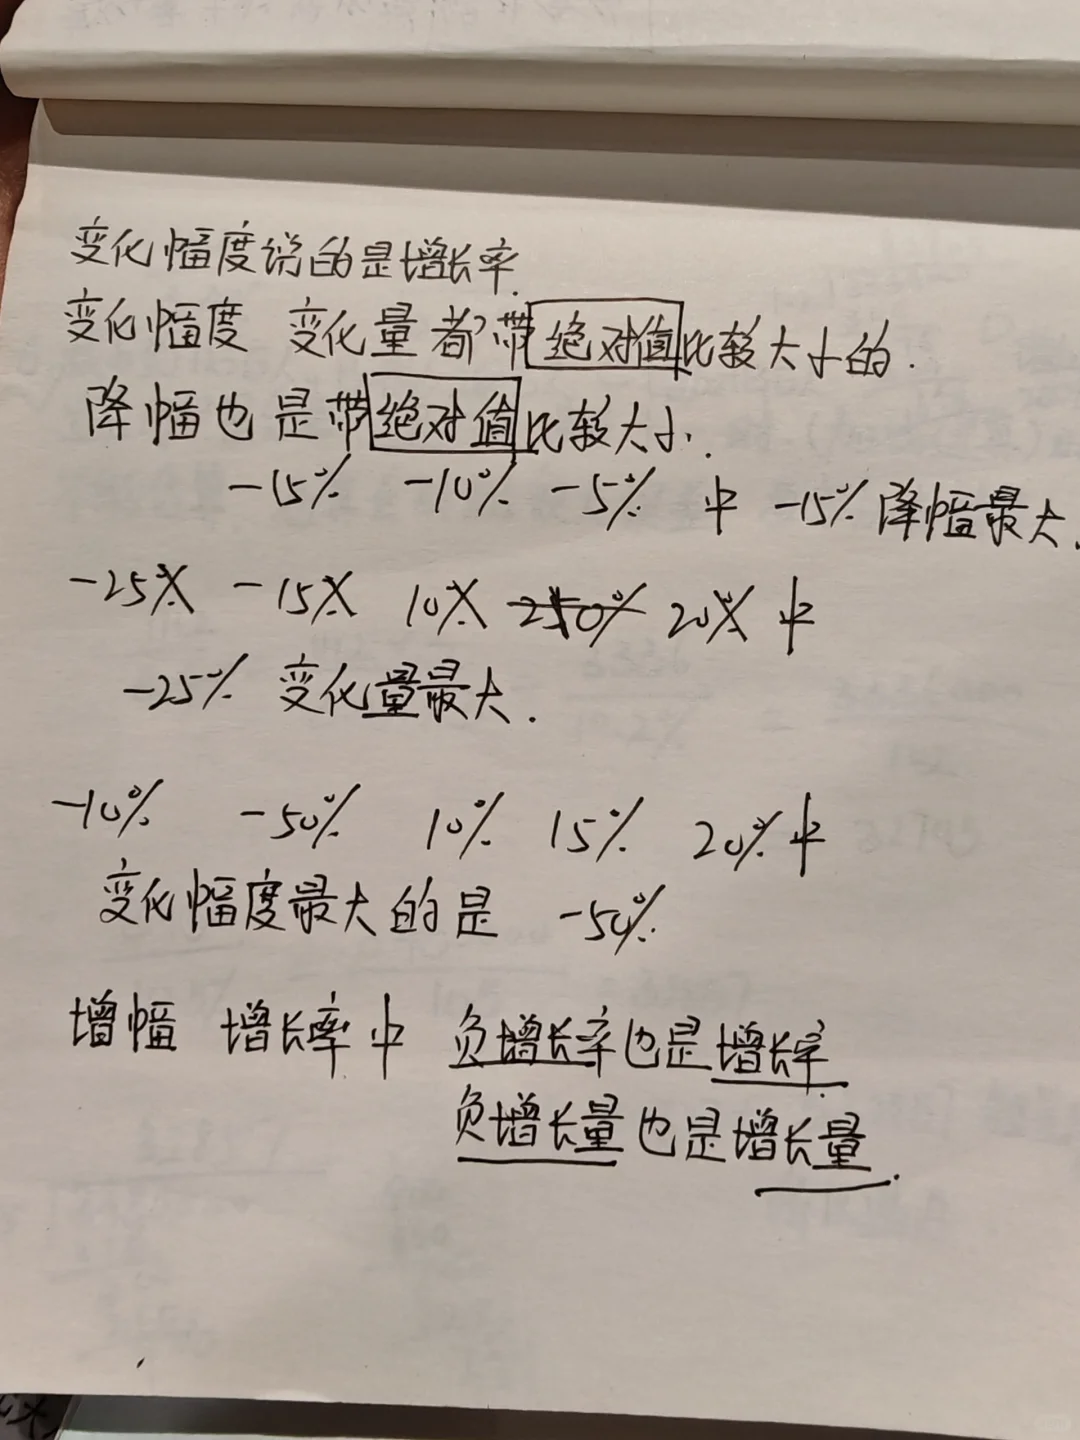 变化幅度说的是增长率.
变化幅度 变化量都带绝对值比较大小的.
降幅也是带绝对值比较大小.
-15% -10% -5% 中 -15%降幅最大.
-25% -15% 10% 250% 20% 中
-25% 变化量最大.
-10% -50% 10% 15% 20%中
变化幅度最大的是 -50%.
增幅 增长率中 负增长率也是增长率.
负增长量也是增长量.